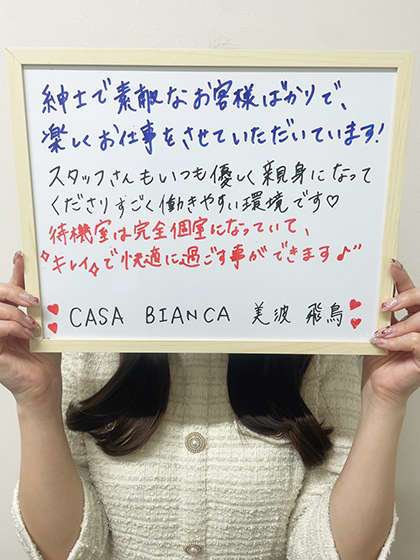 紳士で素敵なお客様ばかりで、
楽しくお仕事をさせていただいています!
スタッフさんもいつも優しく親身になって
くださりすごく働きやすい環境です♡
待機室は完全個室になっていて、
"キレイ"で快適に過ごす事ができます♪"
CASA BIANCA 美波 飛鳥